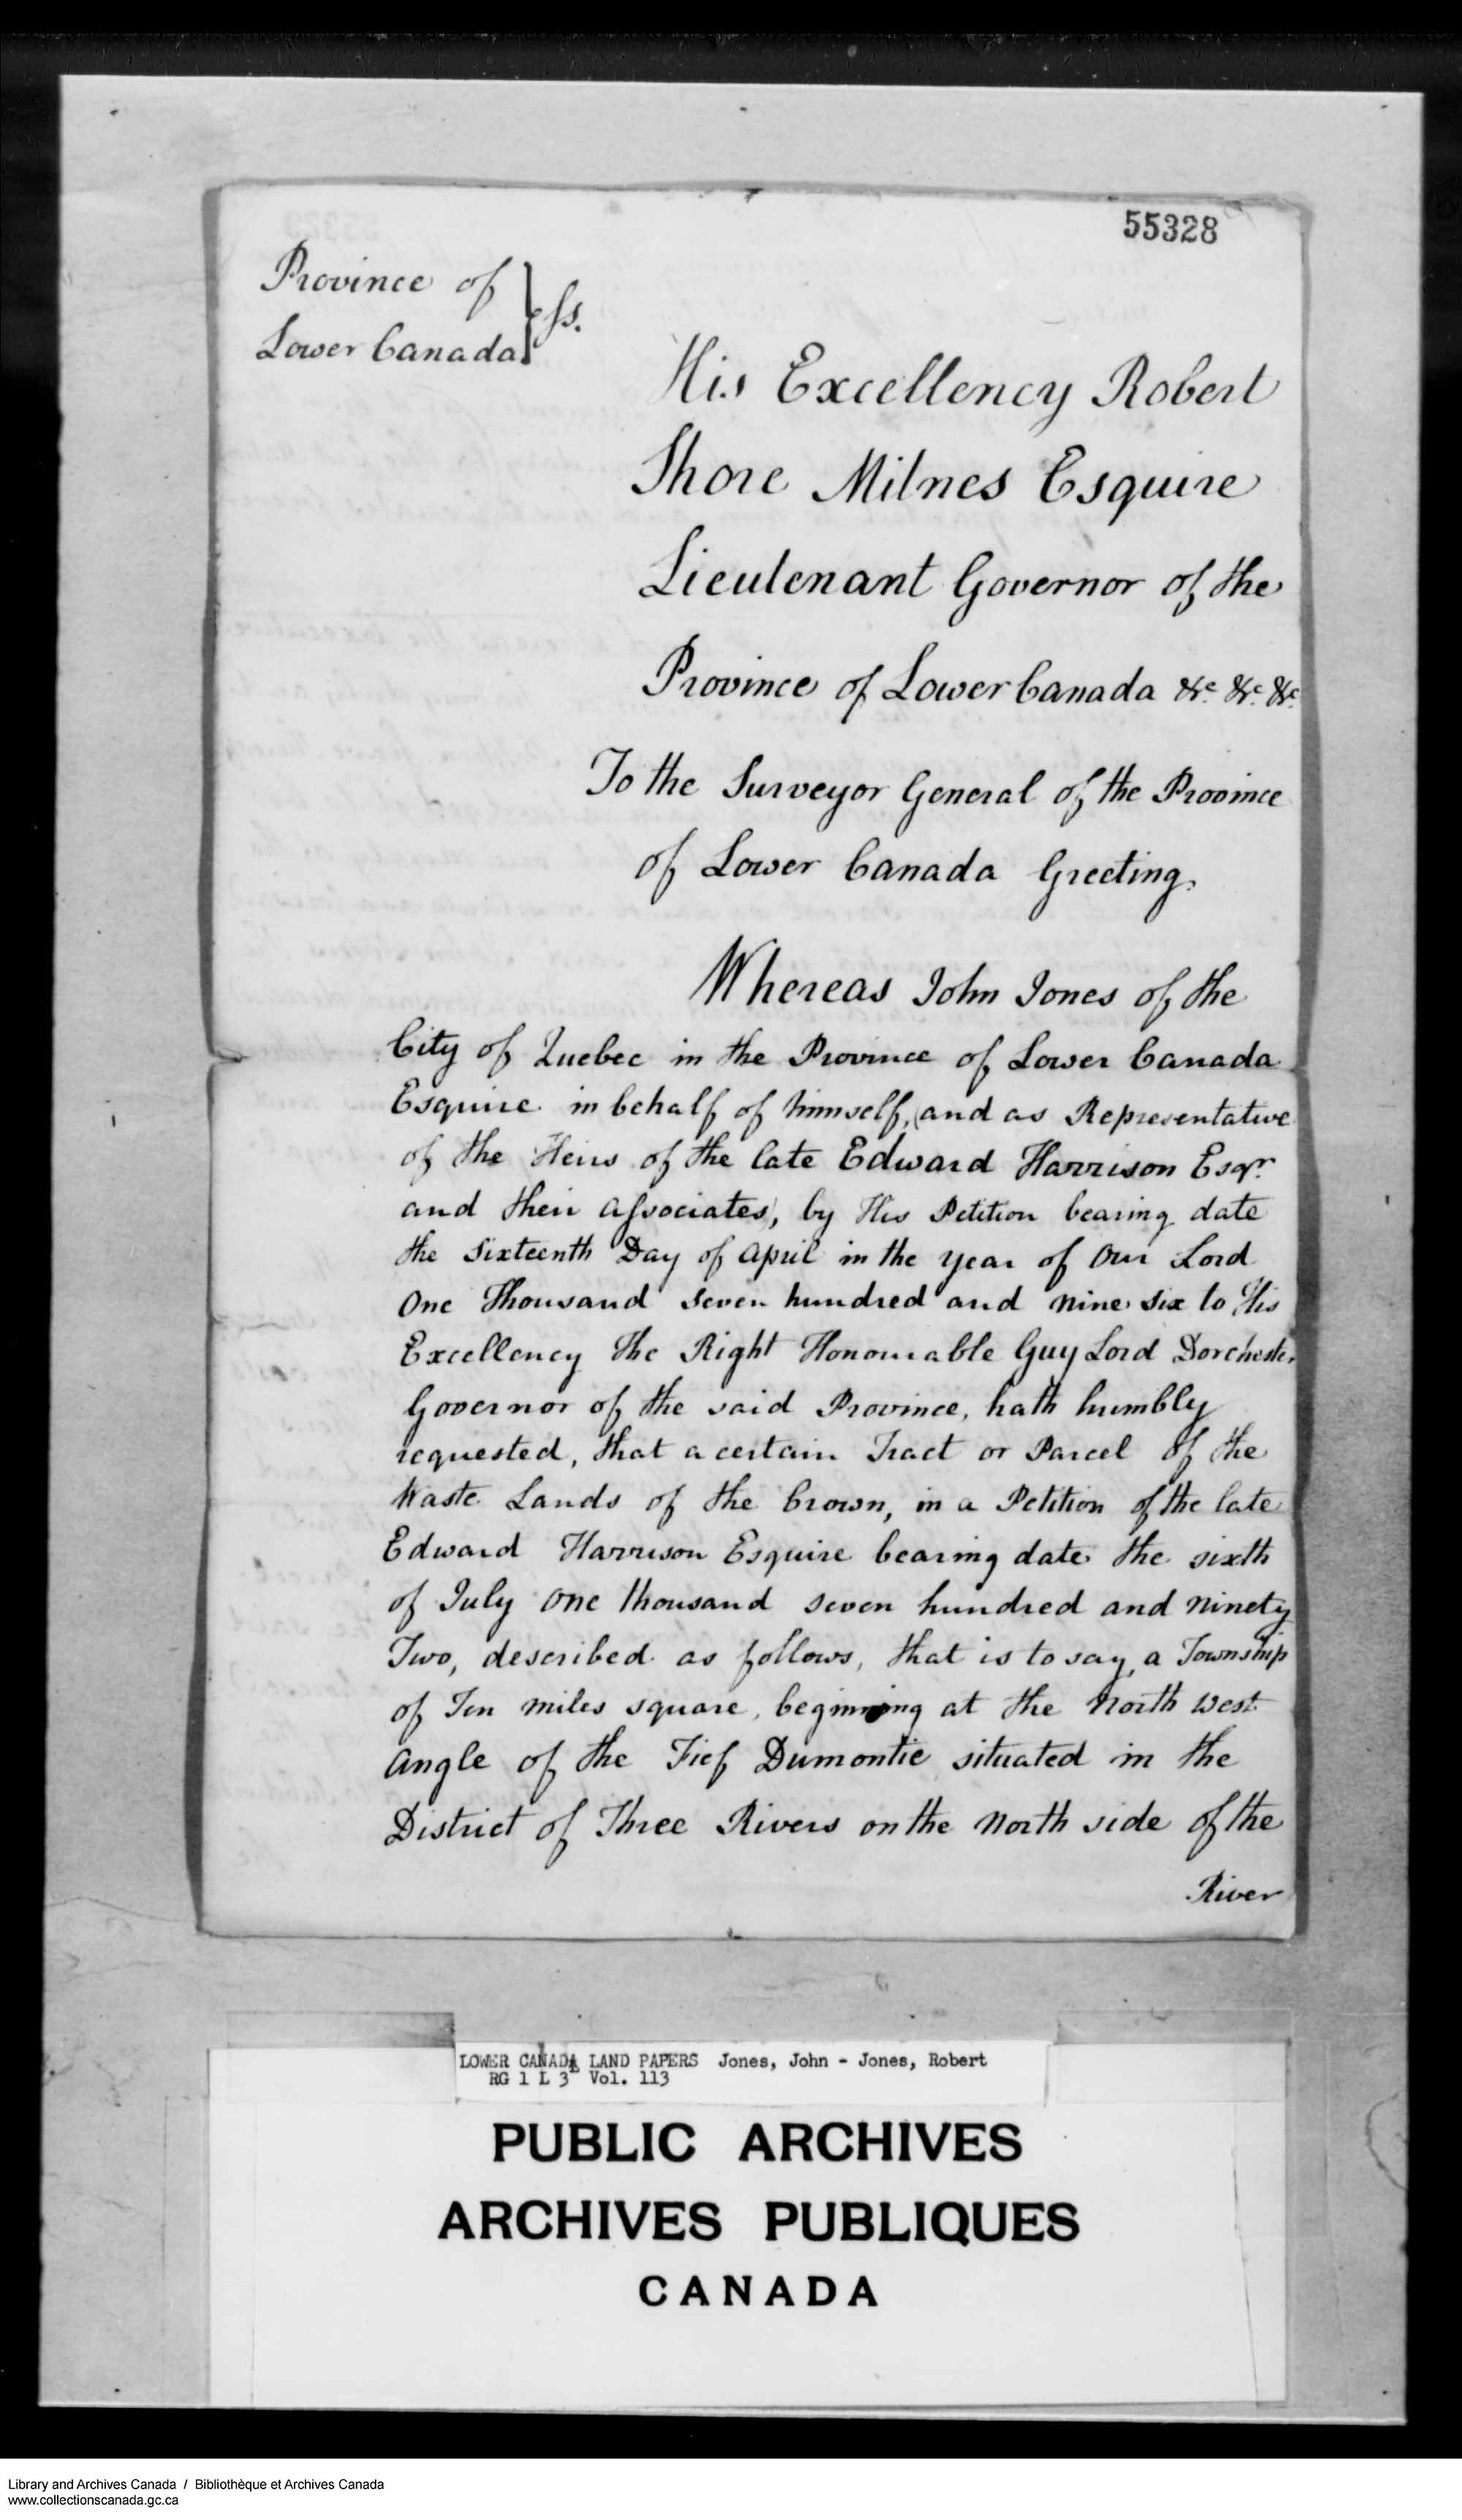 55328
Province of
Lower Canada } ss.
His Excellency Robert
Shore Milnes Esquire
Lieutenant Governor of the
Province of Lower Canada &c. &c. &c.
To the Surveyor General of the Province
of Lower Canada Greeting.
Whereas John Jones of the
City of Quebec in the Province of Lower Canada
Esquire in behalf of himself, and as Representative
of the Heirs of the late Edward Harrison Esqr.
and their Associates, by His Petition bearing date
the Sixteenth Day of April in the year of Our Lord
One Thousand Seven hundred and nine six to His
Excellency The Right Honourable Guy Lord Dorchester
Governor of the said Province, hath humbly
requested, that a certain Tract or Parcel of the
Waste Lands of the Crown, in a Petition of the late
Edward Harrison Esquire bearing date the sixth
of July One thousand seven hundred and ninety
Two, described as follows, that is to say, a Township
of Ten miles square, beginning at the North West
Angle of the Fief Dumontie situated in the
District of Three Rivers on the North side of the
River
LOWER CANADA LAND PAPERS Jones, John - Jones, Robert
RG 1 L 3 Vol. 113
PUBLIC ARCHIVES
ARCHIVES PUBLIQUES
CANADA
Library and Archives Canada / Bibliothèque et Archives Canada
www.collectionscanada.gc.ca